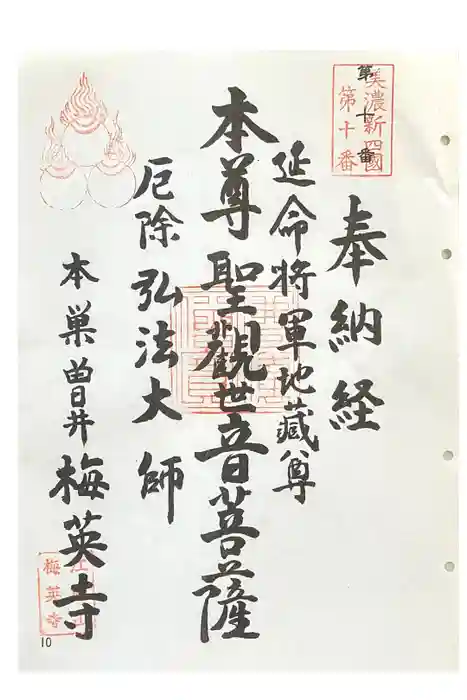 美濃新四國
第十番
第十番
奉納経
延命将軍地蔵尊
本尊聖観世音菩薩
厄除弘法大師
本巣曽井
梅英寺
梅英寺
10